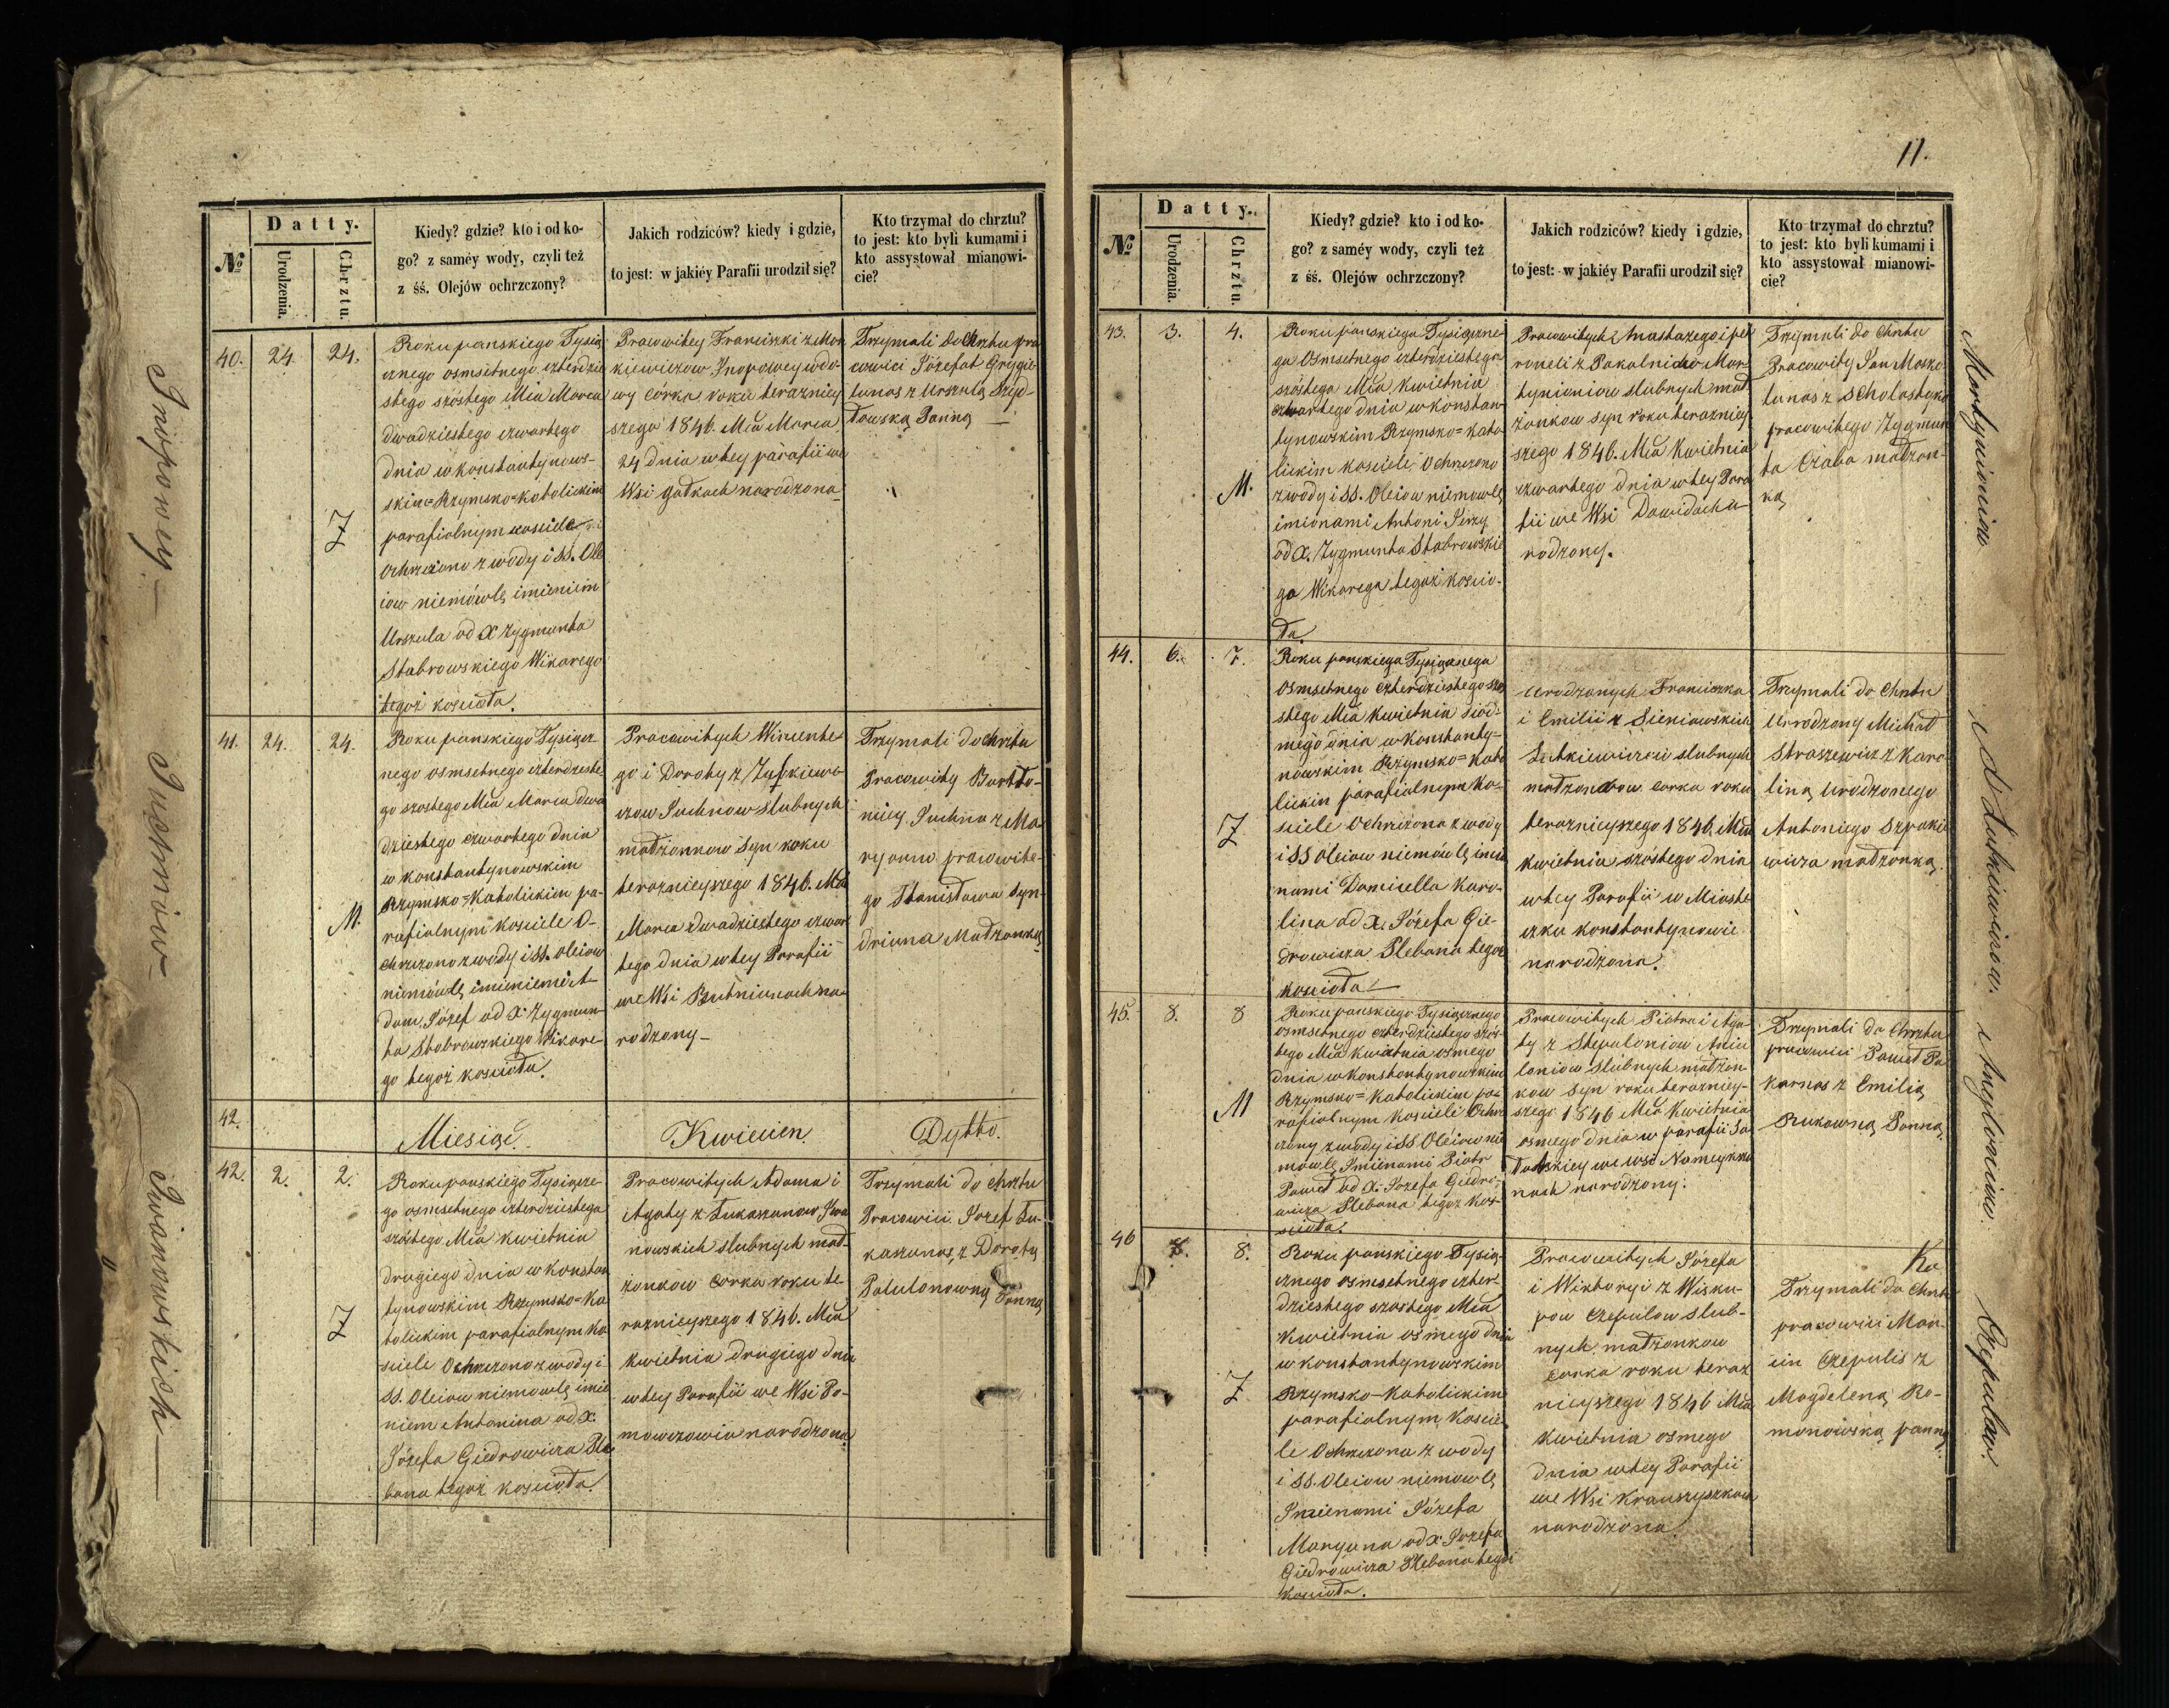 11.
№
Datty.
Urodzenia.
Chrztu.
Kiedy? gdzie? kto i od ko-
go? z saméy wody, czyli też
z śś. Olejów ochrzczony?
Jakich rodziców? kiedy i gdzie,
to jest: w jakiéy Parafii urodził się?
Kto trzymał do chrztu?
to jest: kto byli kumami i
kto assystował mianowi-
cie?
40.
24.
24.
Ż
Roku panskiego Tysią
cznego osmsetnego czterdzie
stego szóstego Mca Marca
dwadziestego czwartego
dnia w konstantynows-
kim Rzymsko=Katolickim
parafialnym kosciele
Ochrzczono z wody i SS. Ole
iow niemówlę imieniem
Urszula od X Zygmunta
Stabrowskiego Wikarego
tegoż koscioła.
Pracowitey Franciszki z Mon
kiewiczow Jnopowey wdo-
wy córka roku terazniey
szego 1846. Mca Marca
24 dnia w tey parafii we
Wsi Gatkach narodzona
Trzymali do Chrztu pra
cowici Józefat Grygie
lunas z Urszulą Szyd-
łowską Panną —
41.
24.
24.
M.
Roku panskiego Tysiącz
nego osmsetnego czterdzieste
go szostego Mca Marca dwa
dziestego czwartego dnia
w konstantynowskim
Rzymsko=Katolickim pa-
rafialnym kosciele O-
chrzczono z wody i SS. oleiow
niemówlę imieniem A-
dam, Józef od X Zygmun-
ta Stabrowskiego Wikare-
go tegoż koscioła.
Pracowitych Wincente
go i Doroty z
czow Juchnow slubnych
małżonkow Syn roku
teraznieyszego 1846. Mca
Marca dwadziestego czwar
tego dnia w tey Parafii
we Wsi Butniunach na-
rodzony —
Trzymali do chrztu
Pracowity Bartło-
miey Juchna z Ma
ryanną pracowite-
go Stanisława Syn-
driuna Małżonką
42.
Miesiąc.
Kwiecien.
Dytto.
42.
2.
2.
Ż
Roku panskiego Tysiączne-
go osmsetnego czterdziestego
szóstego Mca kwietnia
drugiego dnia w konstan
tynowskim Rzymsko=Ka
tolickim parafialnym ko
sciele Ochrzczono z wody i
SS. Oleiow niemowlę imie
niem Antonina od X.
Józefa Giedrowicza Ple
bana tegoż kosciola.
Pracowitych Adama i
Agaty z Łukaszunow Jwa
nowskich slubnych mał-
żonkow Corka roku te
raznieyszego 1846. Mca
Kwietnia drugiego dnia
w tey Parafii we Wsi Po-
mowczowia narodzona
Trzymali do chrztu
Pracowici Jozef Łu-
kaszunas, z Dorotą
Patulonowną Panną
Jnopowey —
Juchniow —
Jwanowskich —
№
Datty.
Urodzenia.
Chrztu.
Kiedy? gdzie? kto i od ko-
go? z saméy wody, czyli też
z śś. Olejów ochrzczony?
Jakich rodziców? kiedy i gdzie,
to jest: w jakiéy Parafii urodził się?
Kto trzymał do chrztu?
to jest: kto byli kumami i
kto assystował mianowi-
cie?
43.
3.
4.
M.
Roku panskiego Tysiączne-
go Osmsetnego czterdziestego
szóstego Mca kwietnia
czwartego dnia w konstan
tynowskim Rzymsko=Kato
lickim kosciele Ochrzczono
z wody i SS. Oleiow niemowlę
imionami Antoni Jerzy
od X. Zygmunta Stabrowskie
go Wikarego tegoż koscio-
ła.
Pracowitych Anastazego i Pet
roneli z Pakalnisko Mar-
tynioniow slubnych mał
żonkow syn roku teraźniey
szego 1846. Mca Kwietnia
czwartego dnia w tey Para
fii we Wsi Dawidacka
rodzony.
Trzymali do Chrztu
Pracowity Jan Moszko-
lunas z Scholastyką
pracowitego Zygmun
ta Czaba małżon-
ką
44.
6.
7.
Ż
Roku panskiego Tysiącznego
Osmsetnego czterdziestego szó
stego Mca kwietnia siód-
mego dnia w konstanty-
nowskim Rzymsko=Kato
lickim parafialnym ko-
sciele Ochrzczona z wody
i SS Oleiow niemówlę imio
nami Domicella Karo-
lina od X. Józefa Gie-
drowicza Plebana tegoż
kosciola —
Urodzonych Franciszka
i Emilii z Sieniawskich
Lutkiewiczow slubnych
małżonkow corka roku
teraznieyszego 1846. Mca
kwietnia szóstego dnia
w tey Parafii w Miaste
czku konstantynowie
narodzona.
Trzymali do Chrztu
Urodzony Michał
Straszewicz z Karo
liną Urodzonego
Antoniego Szpakie
wicza małżonką.
45.
8.
8
M
Roku panskiego Tysiącznego
osmsetnego czterdziestego szós-
tego Mca kwietnia osmego
dnia w Konstantynowskim
Rzymsko=Katolickim pa-
rafialnym Kosciele Ochrz
czony z wody i SS Oleiow nie
mowlę Jmienami Piotr
Paweł od X. Jozefa Giedro-
wicza Plebana tegoż kos-
cioła.
Pracowitych Piotra i Aga-
ty z Stepuloniow Anie
loniow slubnych małżon-
kow syn roku teraźniey-
szego 1846 Mca Kwietnia
osmego dnia w parafii Sa
łatskiey we wsi Nameykszu
nach narodzony.
Trzymali do Chrztu
pracowici Paweł Pa
karnas z Emilią
Rukowną Panną.
46
8.
8.
Ż
Roku panskiego Tysią-
cznego osmsetnego czter
dziestego szostego Mca
Kwietnia osmego dnia
w konstantynowskim
Rzymsko—Katolickim
parafialnym Koscie-
le Ochrzczona z wody
i SS. Oleiow niemowlę
Jmienami Józefa
Maryana od X. Jozefa
Giedrowicza Plebana tegoż
kosciola.
Pracowitych Józefa
i Wiktoryi z Wisku-
pow Czepulow slub-
nych małżonkow
corka roku teraz
nieyszego 1846 Mca
Kwietnia osmego
dnia w tey Parafii
we Wsi Krauszyszkach
narodzona.
Ka
Trzymali do Chrztu
pracowici Mar-
cin Czepulis z
Magdeleną Ro-
monowską panną.
Martynioniow
Lutkiewiczow.
Anejloniow.
Czepulow.